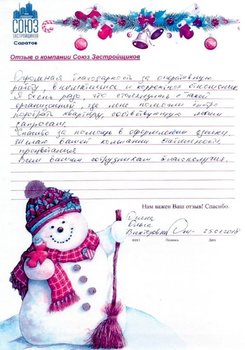 СОЮЗ
ЗАСТРОЙЩИКОВ
Саратов
Отзыв о компании Союз Застройщиков
Огромная благодарность за оперативную
работу, внимательное и корректное отношение.
Я очень рада, что столкнулась с такой
организацией, где мне помогли быстро
подобрать квартиру, соответствующую моим
запросам.
Спасибо за помощь в оформлении сделки,
желаю вашей компании
процветания!
Вам вашим сотрудникам благополучия.
Нам важен Ваш отзыв! Спасибо.
Ольга
Викторовна
ФИО Подпись Дата